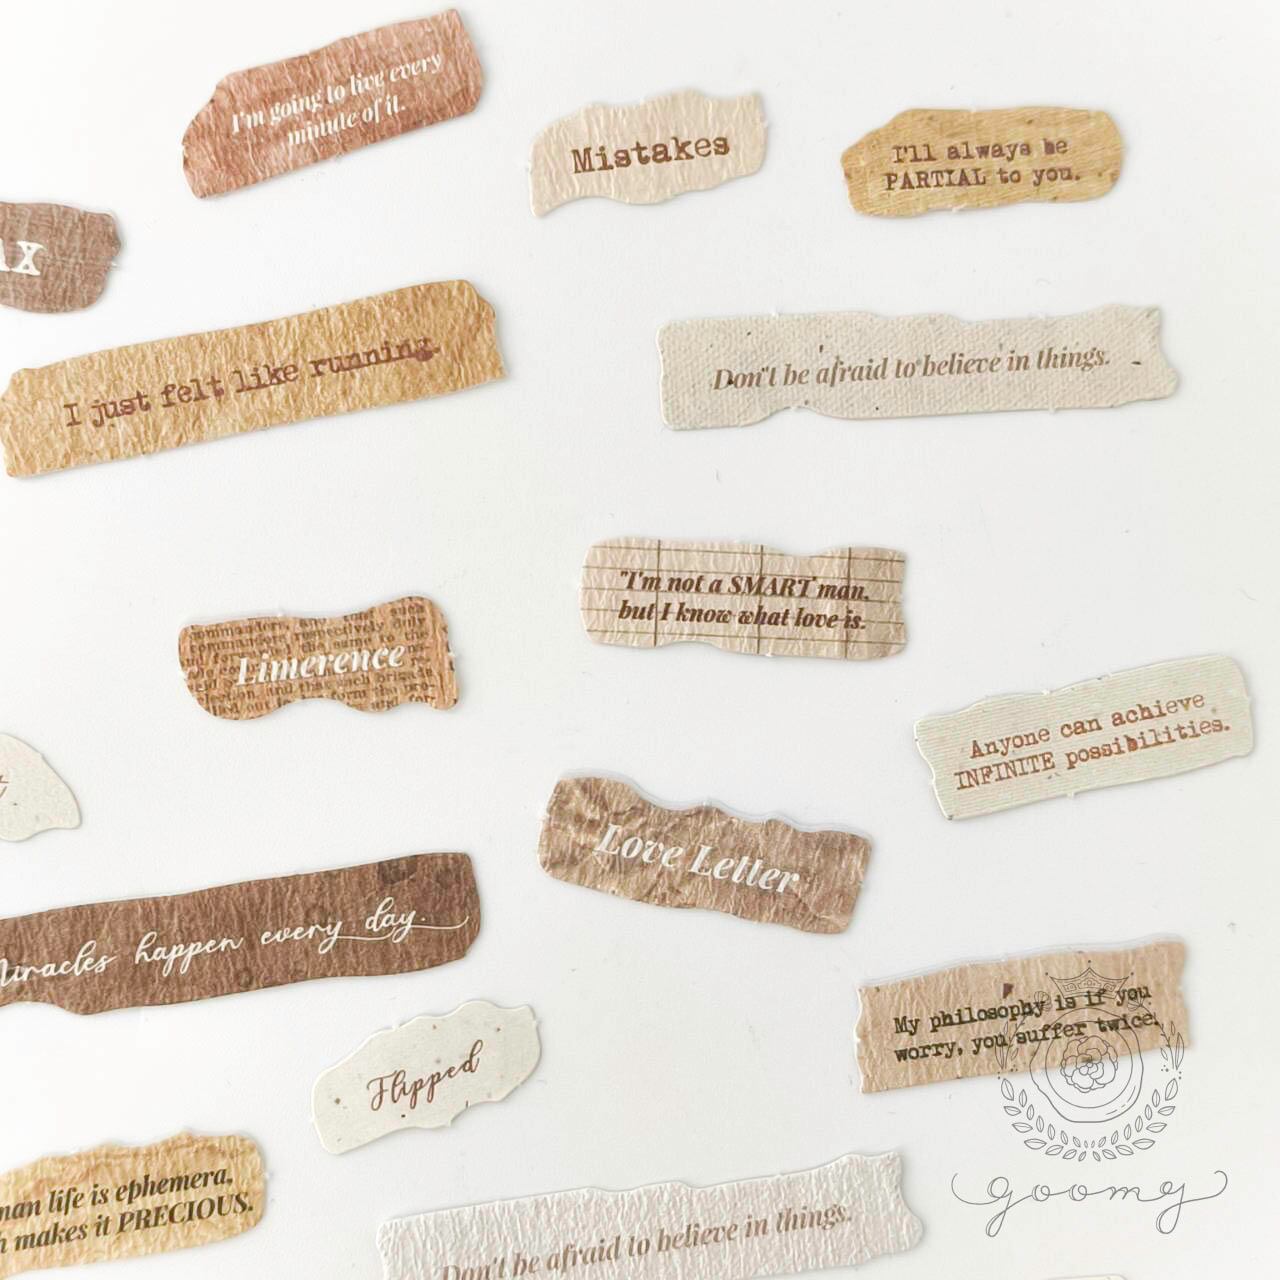 I'm going to live every
minute of it.
Mistakes
I'll always be
PARTIAL to you.
I just felt like running.
Don't be afraid to believe in things.
"I'm not a SMART man,
but I know what love is.
Limerence
Anyone can achieve
INFINITE possibilities.
Love Letter
Miracles happen every day.
My philosophy is if you
worry, you suffer twice.
Flipped
man life is ephemera,
h makes it PRECIOUS.
Don't be afraid to believe in things.
goomy